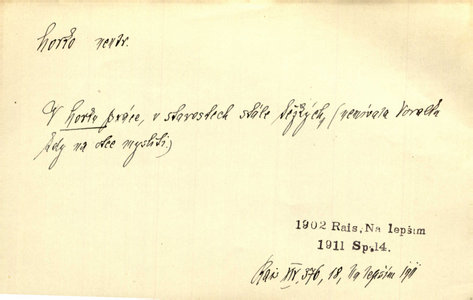 horko neutr.
V horku práce, v starostech stále těžkých, (neměvala Voralka
kdy na otce mysliti.)
1902 Rais, Na lepším
1911 Sp.14.
Rais XIV, 376, 18, Na lepším 1911